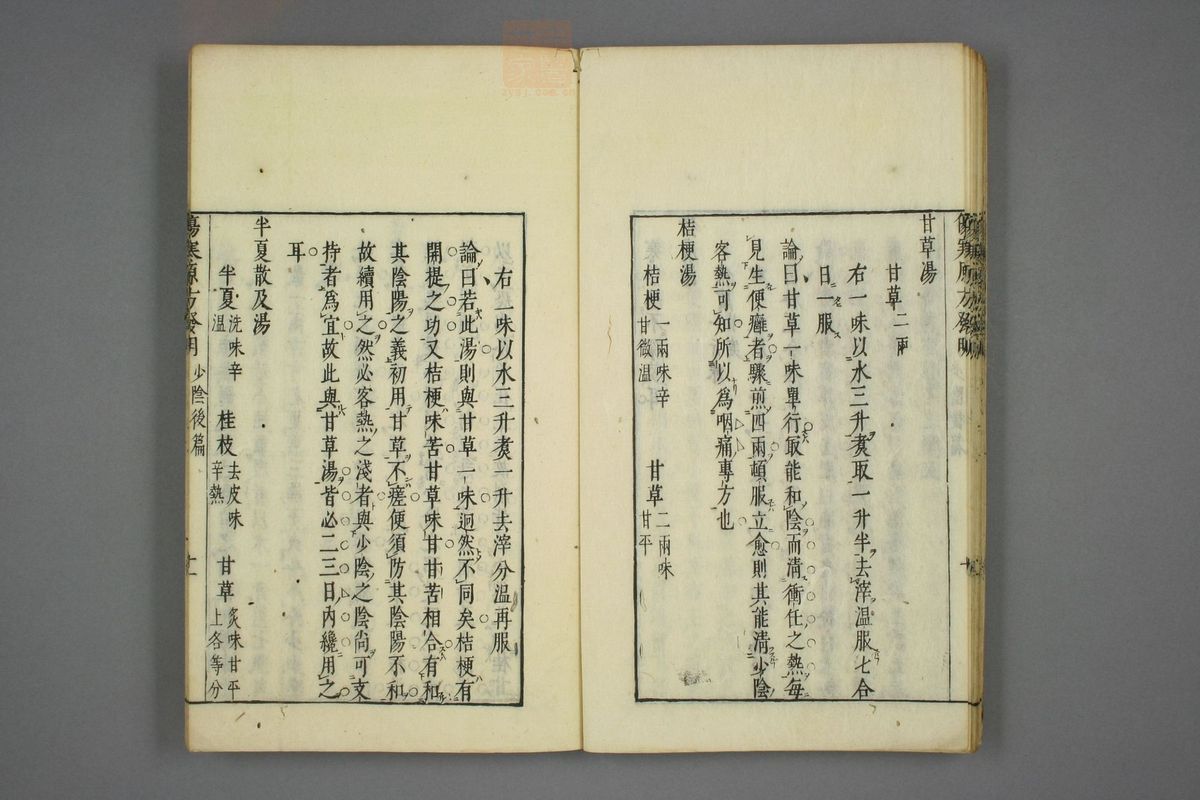 甘草湯
甘草二兩
右一味以水三升煑取一升半去滓溫服七合
日二服
論曰甘草一味單行取能和陰而清衝任之熱每
見生便癰者驟煎四兩頓服立愈則其能清少陰
客熱可知所以為咽痛專方也
桔梗湯
桔梗一兩味辛甘微溫 甘草二兩味甘平
右一味以水三升煑一升去滓分溫再服
論曰若此湯則與甘草一味迥然不同矣桔梗有
開提之功又桔梗味苦甘草味甘甘苦相合有和
其陰陽之義初用甘草不瘥便須防其陰陽不和
故續用之然必客熱之淺者與少陰之陰尚可支
持者為宜故此與甘草湯皆必二三日內纔用之
耳
半夏散及湯
半夏洗味辛溫 桂枝去皮味辛熱 甘草炙味甘平上各等分
傷寒源方發明 少陰後篇